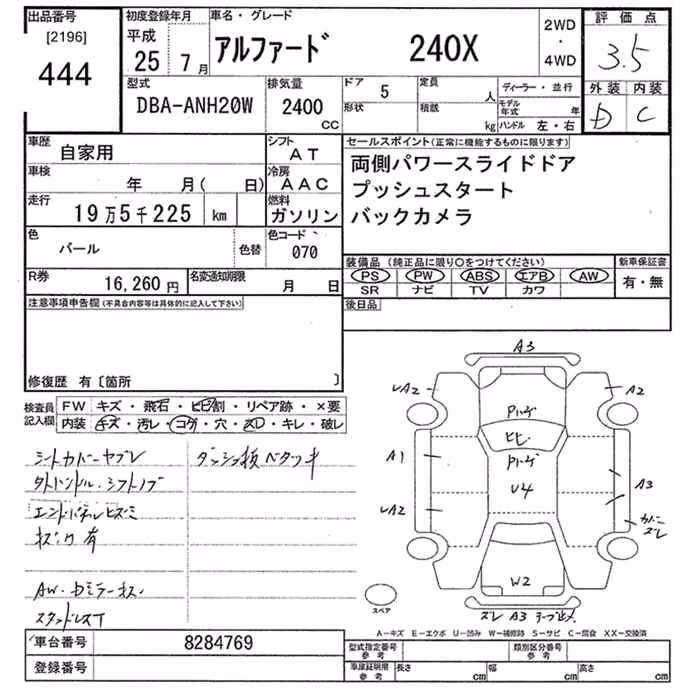 出品番号
[2196]
444
初度登録年月
平成
25 7月
車名・グレード
アルファード 240X
2WD
・
4WD
評価点
3.5
外装 内装
D C
型式
DBA-ANH20W
排気量
2400
CC
ドア 5
形状
定員 人
積載 kg
ディーラー・並行
モデル年式 年
ハンドル 左・右
車歴
自家用
シフト
AT
車検
年 月( 日)
冷房
AAC
走行
19万5千225 km
燃料
ガソリン
色
パール
色替
色コード
070
R券
16,260 円
名変通知期限
月 日
セールスポイント(正常に機能するものに限ります)
両側パワースライドドア
プッシュスタート
バックカメラ
装備品(純正品に限り○をつけてください)
PS PW ABS エアB AW
SR ナビ TV カワ
新車保証書
有・無
後日品
注意事項申告欄(不具合内容等は具体的に記入して下さい)
修復歴 有〔箇所 〕
検査員
記入欄
FW キズ・飛石・ヒビ割・リペア跡・×要
内装 キズ・汚レ・コゲ・穴・スレ・キレ・破レ
シートカバーヤブレ
ダッシュ板ベタツキ
外ハンドル・シフトノブ
エンドパネルヒズミ
キズ, ワ 有
AW・ドミラーキズ
A3
UA2
A2
ヒビ
A1
U4
A3
UA2
カバー
ズレ
W2
ズレ A3 テープ止メ
スペア
A−キズ E−エクボ U−凹み W−補修跡 S−サビ C−腐食 XX−交換済
車台番号
8284769
登録番号
型式指定番号
参考
類別区分番号
参考
車庫証明用
参考
長さ cm
幅 cm
高さ cm